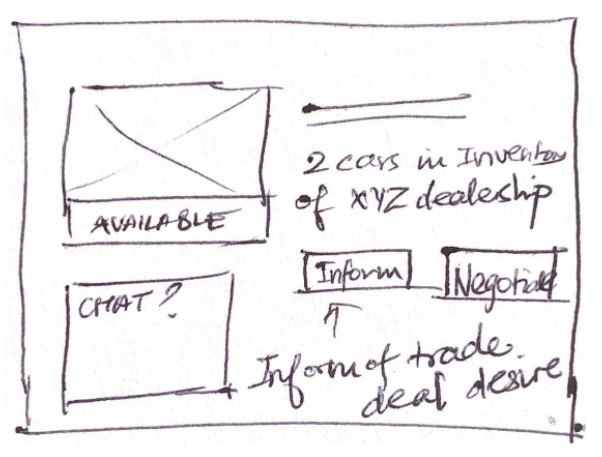 AVAILABLE
2 cars in Inventory
of XYZ dealership
Inform
Negotiate
CHAT?
Inform of trade
deal desire